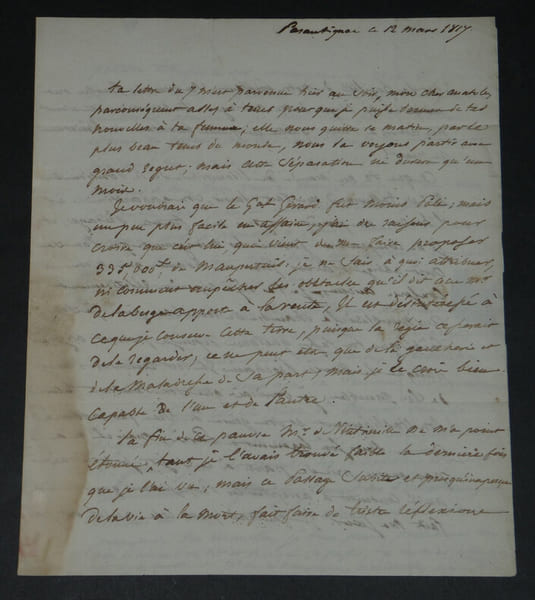 ce 12 mars 1817
ta lettre du 7 m'est parvenue hier au soir, mon cher
parconséquent assez à tems pour que je puisse donner de tes
nouvelles à ta femme; elle nous quitte ce matin, par le
plus beau tems du monde, nous la voyons partir avec
grand regret; mais cette séparation ne durera qu'un
mois.
Je voudrais que le Gal Girard fut moins poli; mais
un peu plus facile en affaire, j'ai des raisons pour
croire que c'est lui qui vient de me faire proposer
335,000 f. de je ne sais à quoi attribuer,
ni comment empêcher les obstacles qu'il dit que mr
apporte à la vente, Il est
ce que je conserve cette terre, puisque la
de la regarder, ce ne peut être que de la gaucherie et
de la maladresse de sa part, mais je le crois bien
capable de l'une et de l'autre.
la fin de ce pauvre Mr. de ne m'a point
étonné, tant je l'avais trouvé faible la dernière fois
que je l'ai vu; mais ce passage subit et presqu'inaperçu
de la vie à la mort, fait faire de tristes réflexions